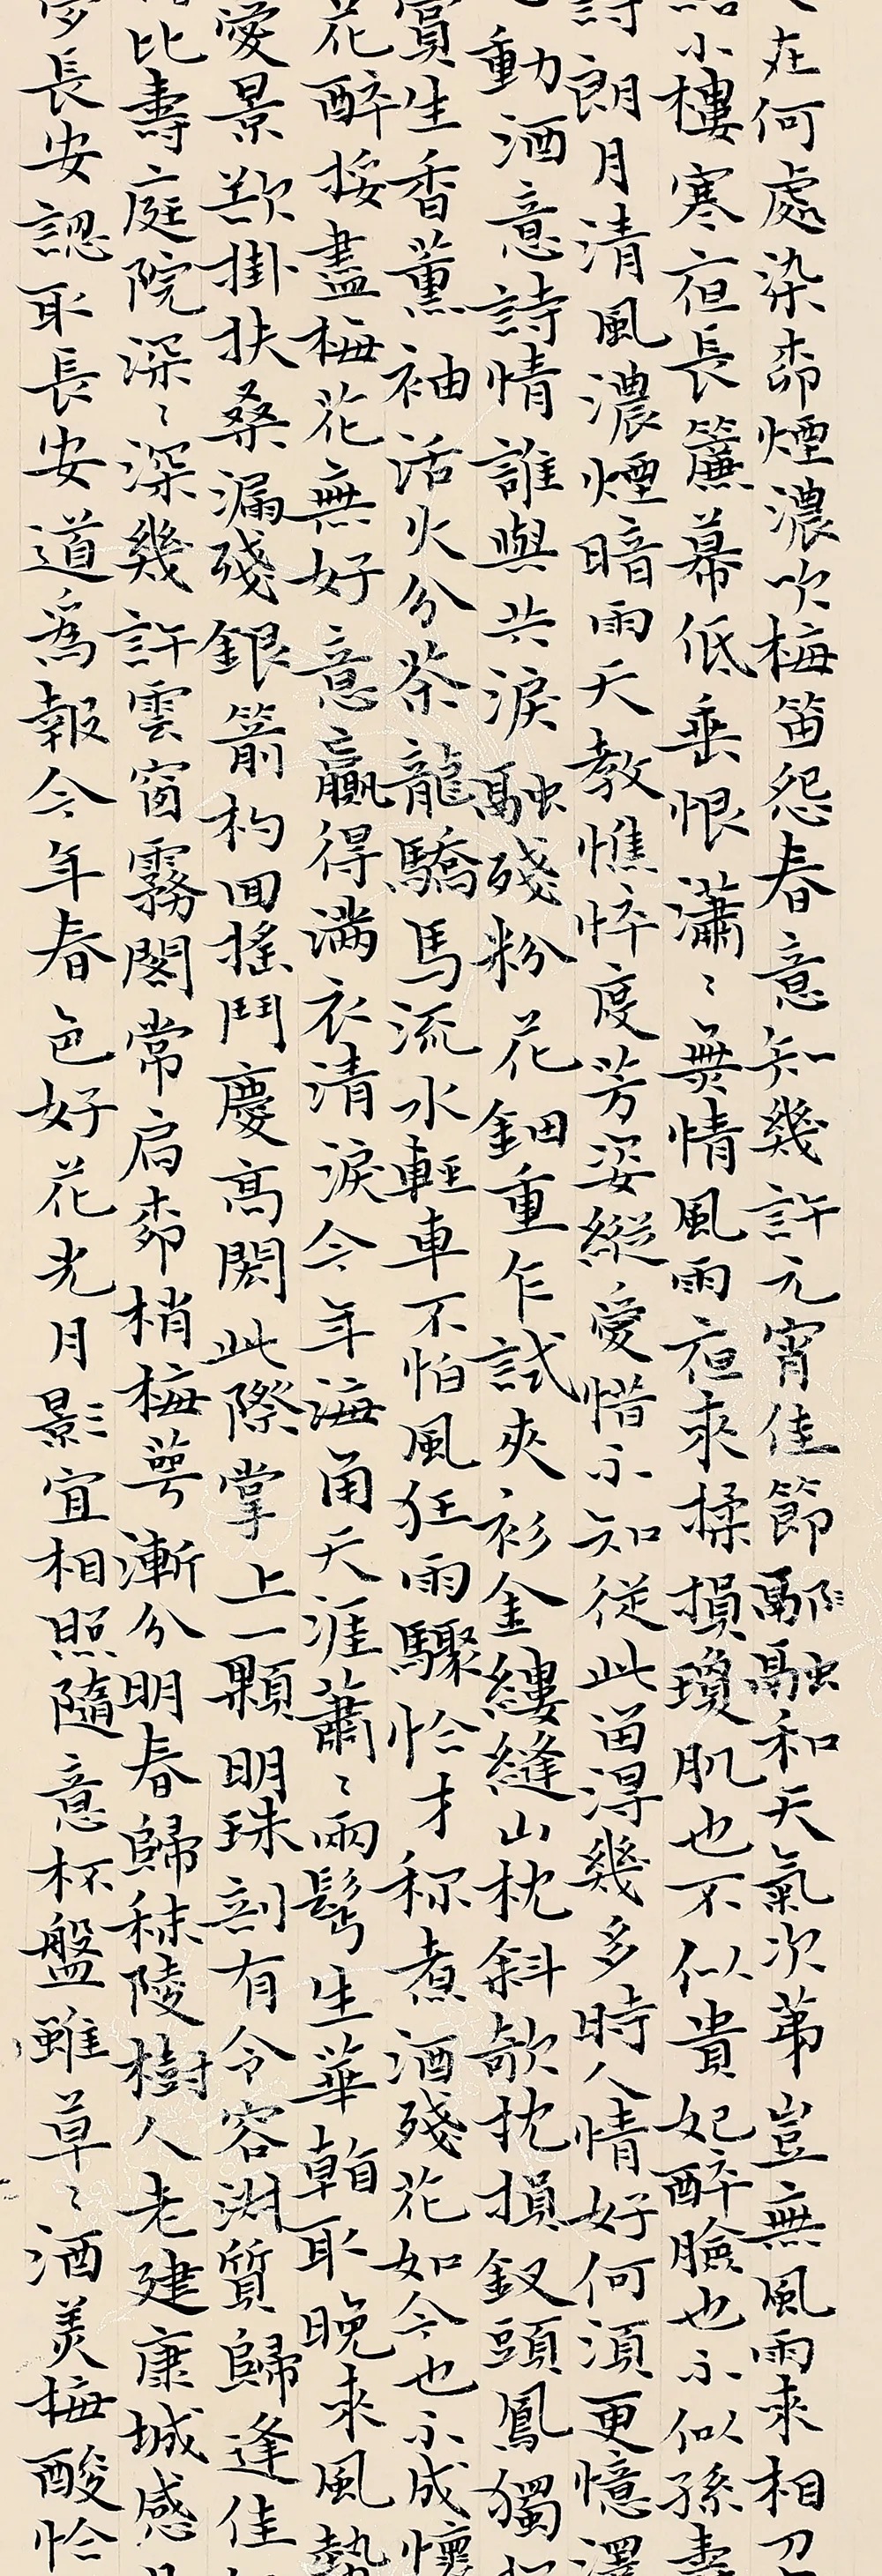 在何處染柳煙濃吹梅笛怨春意知幾許元宵佳節融和天氣次第豈無風雨來相召
小樓寒夜長簾幕低垂恨瀟〻無情風雨夜來揉損瓊肌也不似貴妃醉臉也不似孫壽
詩朗月清風濃煙暗雨天教憔悴度芳姿縱愛惜不知從此留得幾多時人情好何須更憶澤
動酒意詩情誰與共淚融殘粉花鈿重乍試夾衫金縷縫山枕斜欹枕損釵頭鳳獨抱
賞生香薰袖活火分茶龍驕馬流水輕車不怕風狂雨驟恰才稱煮酒殘花如今也不成懷
花醉挼盡梅花無好意贏得滿衣清淚今年海角天涯蕭〻兩鬢生華看取晚來風勢
愛景欲掛扶桑漏殘銀箭杓回搖斗慶高閎此際掌上一顆明珠剖有令容淑質歸逢佳
比壽庭院深〻深幾許雲窗霧閣常扃柳梢梅萼漸分明春歸秣陵樹人老建康城感
長安認取長安道為報今年春色好花光月影宜相照隨意杯盤雖草〻酒美梅酸恰